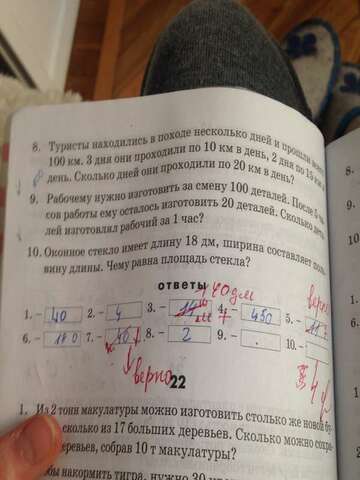 8. Туристы находились в походе несколько дней и прошли
100 км. 3 дня они проходили по 10 км в день, 2 дня по 15 км в
день. Сколько дней они проходили по 20 км в день?
9. Рабочему нужно изготовить за смену 100 деталей. После 5 ча-
сов работы ему осталось изготовить 20 деталей. Сколько дета-
лей изготовлял рабочий за 1 час?
10. Оконное стекло имеет длину 18 дм, ширина составляет поло-
вину длины. Чему равна площадь стекла?
ОТВЕТЫ
верно
1. – 40 2. – 4 3. – 14 4. – 450 5. –
6. – 7. – 8. – 2 9. – 10. –
верно
22
1. Из 2 тонн макулатуры можно изготовить столько же новой бу-
сколько из 17 больших деревьев. Сколько можно сохра-
деревьев, собрав 10 т макулатуры?
бы накормить тигра, нужно 30